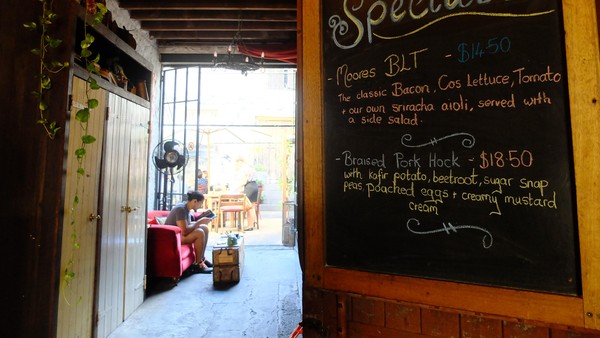 Specials
- Moores BLT - $14.50
The classic Bacon, Cos Lettuce, Tomato
+ our own sriracha aioli, served with
a side salad.
- Braised Pork Hock - $18.50
with Kipfir potato, beetroot, sugar snap
peas, poached eggs + creamy mustard
cream